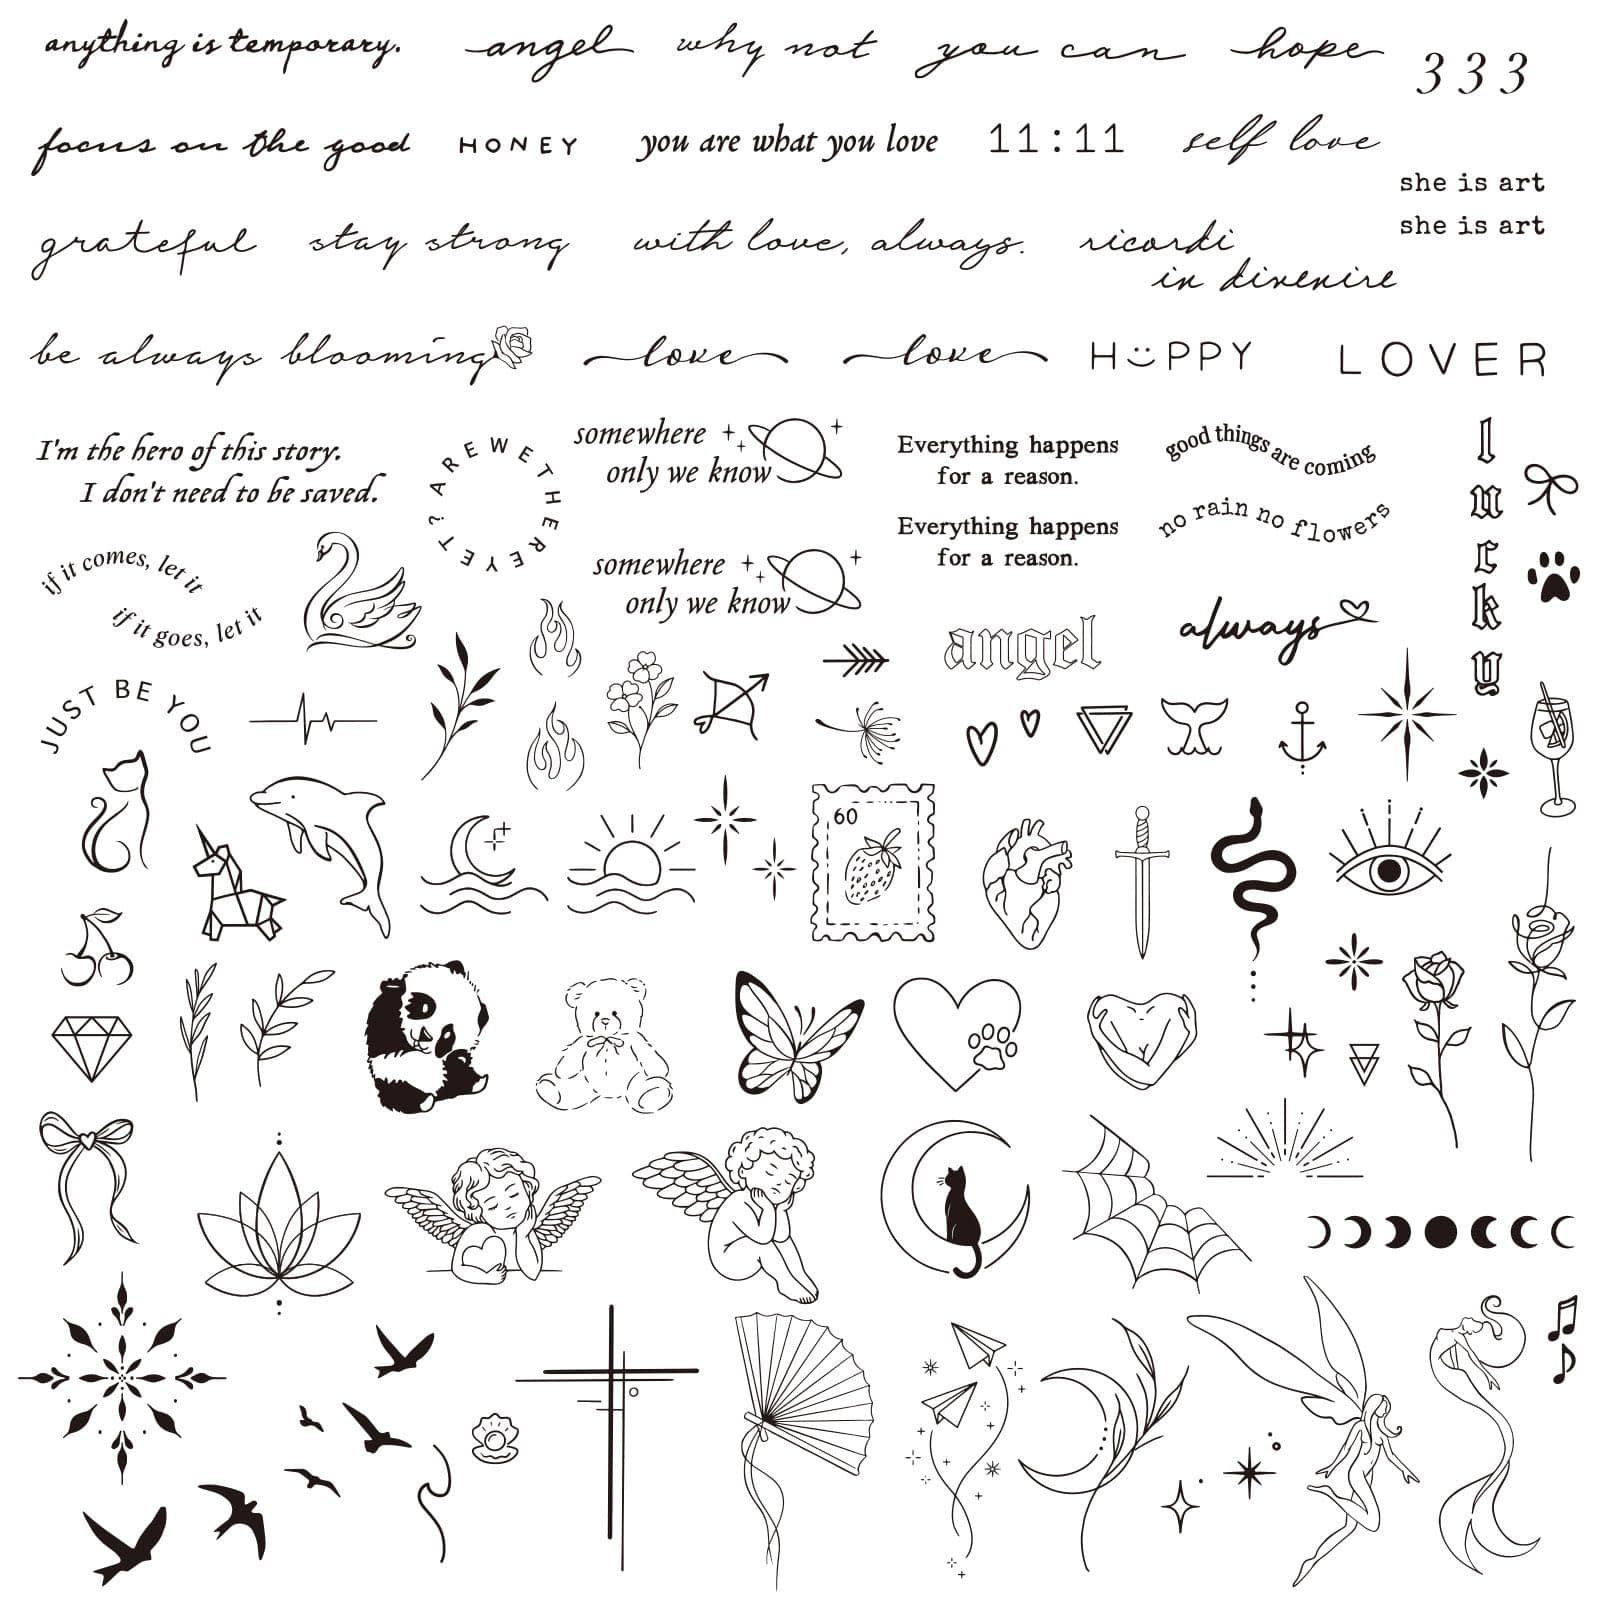 anything is temporary.
angel
why not
you can
hope
333
focus on the good
HONEY
you are what you love
11:11
self love
she is art
she is art
grateful
stay strong
with love, always.
ricordi
in divenire
be always blooming
love
love
HAPPY
LOVER
I'm the hero of this story.
I don't need to be saved.
ARE WE THERE YET?
somewhere
only we know
Everything happens
for a reason.
good things are coming
lucky
no rain no flowers
Everything happens
for a reason.
if it comes, let it
if it goes, let it
somewhere
only we know
angel
always
JUST BE YOU
60